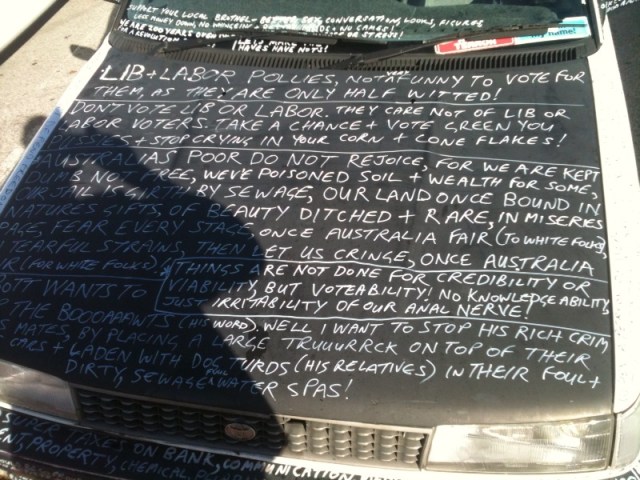 SUPPORT YOUR LOCAL BROTHEL - BETTER SEX, CONVERSATIONS, LOOKS, FIGURES
LESS MONEY DOWN, NO
YEARS 200 YEARS
LIB + LABOR POLLIES, NOT FUNNY TO VOTE FOR
THEM, AS THEY ARE ONLY HALF WITTED!
DONT VOTE LIB OR LABOR. THEY CARE NOT OF LIB OR
LABOR VOTERS. TAKE A CHANCE + VOTE GREEN YOU
+ STOP CRYING IN YOUR CORN + CONE FLAKES!
AUSTRALIAS POOR DO NOT REJOICE, FOR WE ARE KEPT
DUMB NOT FREE, WEVE POISONED SOIL + WEALTH FOR SOME,
OUR JAIL IS GIRTH BY SEWAGE, OUR LAND ONCE BOUND IN
NATURES GIFTS, OF BEAUTY DITCHED + RARE, IN MISERIES
AGE, FEAR EVERY STAGE ONCE AUSTRALIA FAIR (TO WHITE FOLKS),
TEARFUL STRAINS, THEN LET US CRINGE, ONCE AUSTRALIA
(FOR WHITE FOLKS) * THINGS ARE NOT DONE FOR CREDIBILITY OR
VIABILITY, BUT VOTEABILITY! NO KNOWLEDGEABILITY,
JUST IRRITABILITY OF OUR ANAL NERVE!
OTT WANTS TO
THE BOOOAAAWTS (HIS WORD). WELL I WANT TO STOP HIS RICH CRIM
MATES, BY PLACING A LARGE TRUUURRCK ON TOP OF THEIR
CARS + LADEN WITH DOG TURDS (HIS RELATIVES) IN THEIR FOUL +
DIRTY, SEWAGE WATER SPAS!
SUPER TAXES ON BANK, COMMUNICATION
PROPERTY, CHEMICAL